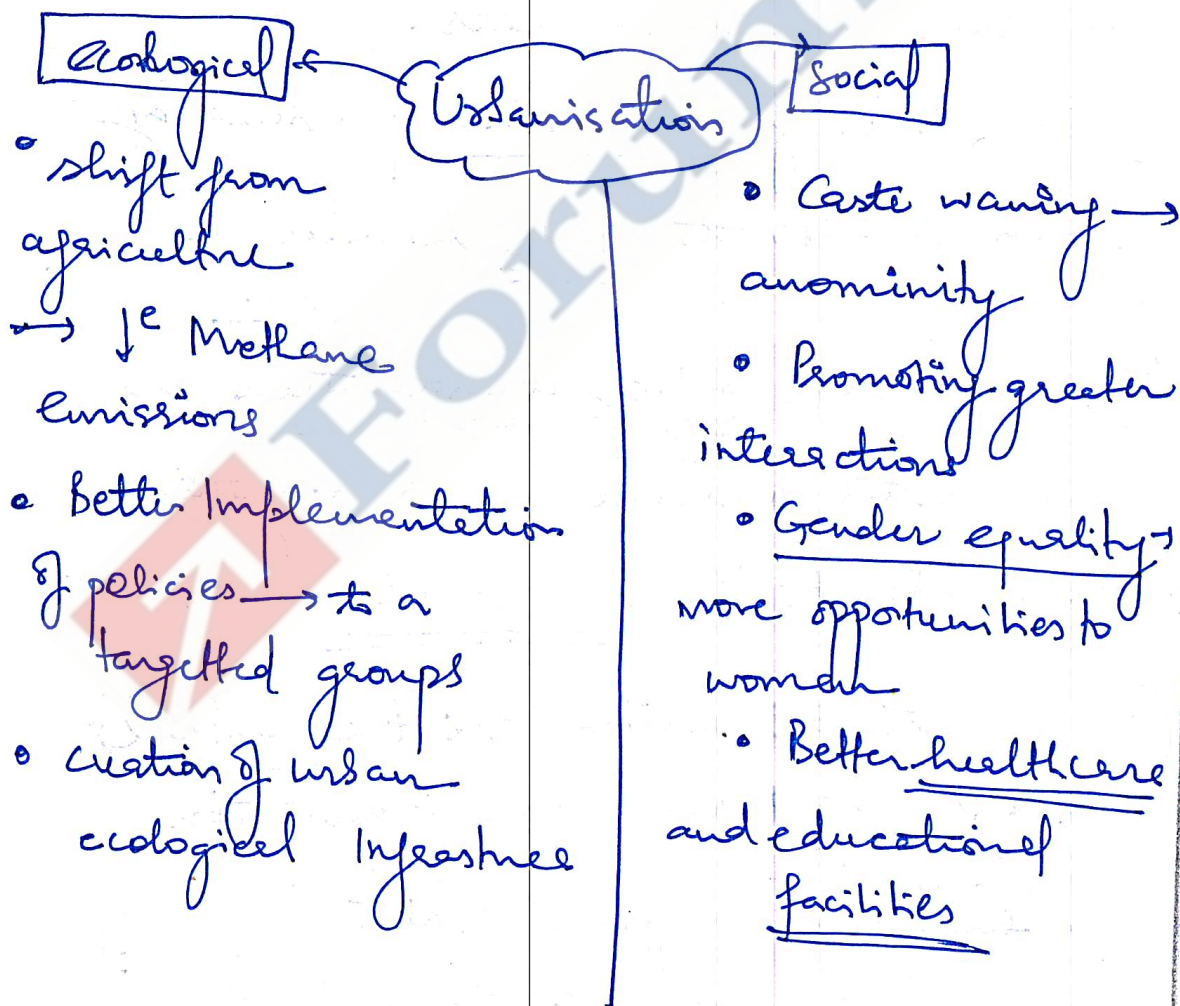 ecological
Urbanisation
Social
• shift from
agriculture
→ ↓e Methane
emissions
• Better Implementation
of policies → to a
targetted groups
• creation of urban
ecological Infrastruce
• Caste waning →
anominity
• Promoting greater
interactions
• Gender equality →
more opportunities to
woman
• Better healthcare
and educational
facilities
Forum